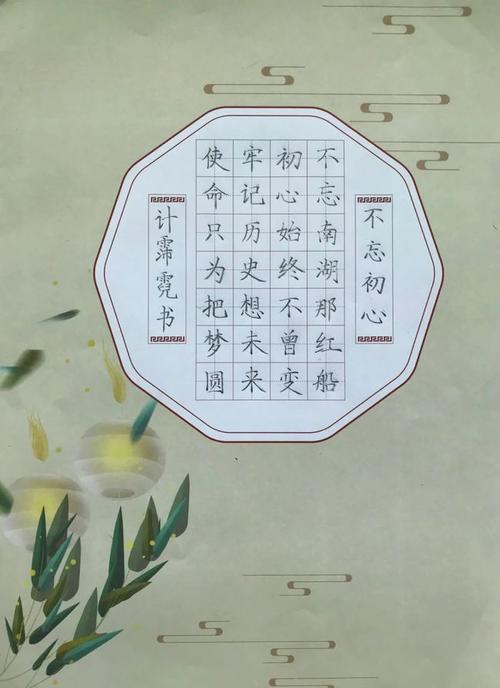 不忘初心
不忘南湖那红船
初心始终不曾变
牢记历史想未来
使命只为把梦圆
计霈霓书